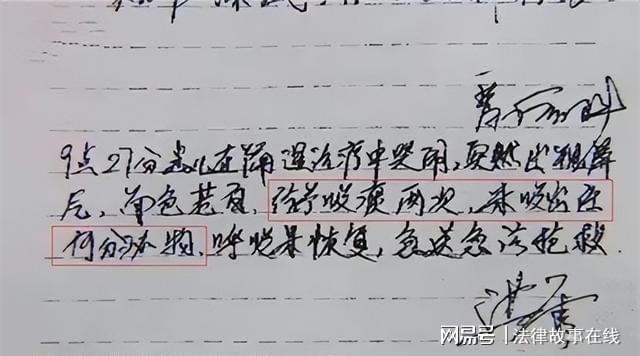 9点27分患儿在治疗中哭闹，突然出现屏
气，面色苍白，给予吸痰两次，未吸出任
何分泌物，呼吸未恢复，急送急诊抢救.
网易号 | 法律故事在线